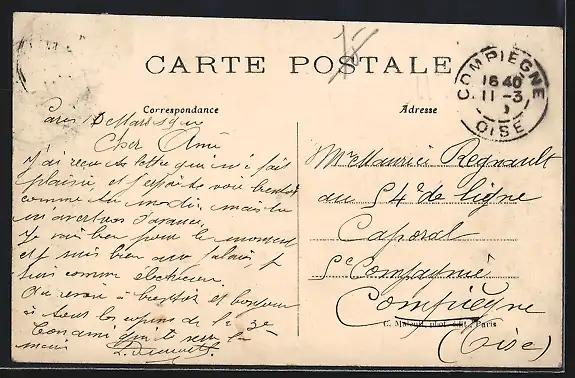 CARTE POSTALE
Correspondance
Adresse
COMPIEGNE
16 40
11 -3
OISE
Paris 10 Mars
Cher Ami
J'ai reçu ta lettre qui m'a fait
plaisir, et j'espère te voir bientôt
comme tu me dis, mais tu
m'avertiras d'avance.
Je vais bien pour le moment
et suis bien au palais, je
suis comme electricien.
Au revoir à bientôt et bonjour
à tous les copains de la 3e
Ton ami qui te serre la
main
Mr Maurice Regnault
au 54e de ligne
Caporal
Compagnie
Compiègne
(Oise)
phot. édit., Paris